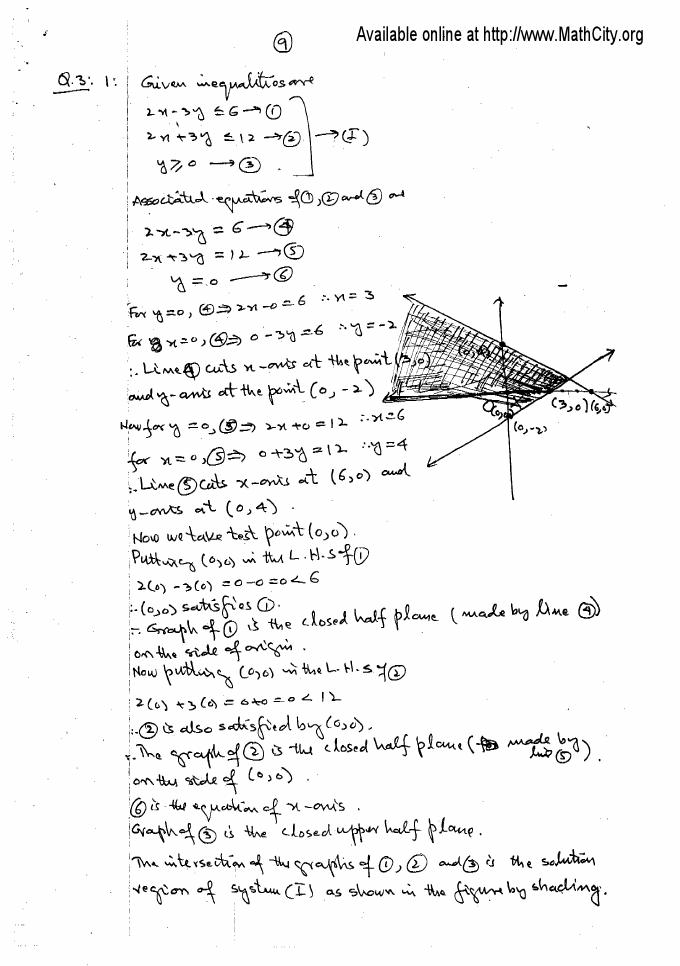 Available online at http://www.MathCity.org
9
Q.3: 1: Given inequalities are
2x-3y ≤ 6 → ①
2x+3y ≤ 12 → ② → (I)
y ≥ 0 → ③
Associated equations of ①, ② and ③ are
2x-3y = 6 → ④
2x+3y = 12 → ⑤
y = 0 → ⑥
For y=0, ④ ⇒ 2x-0=6 ∴ x=3
For x=0, ④ ⇒ 0-3y=6 ∴ y=-2
∴ Line ④ cuts x-axis at the point (3,0)
and y-axis at the point (0,-2)
Now for y=0, ⑤ ⇒ 2x+0=12 ∴ x=6
for x=0, ⑤ ⇒ 0+3y=12 ∴ y=4
∴ Line ⑤ cuts x-axis at (6,0) and
y-axis at (0,4).
(3,0) (6,0)
(0,-2)
Now we take test point (0,0).
Putting (0,0) in the L.H.S of ①
2(0) - 3(0) = 0-0 = 0 < 6
∴ (0,0) satisfies ①.
∴ Graph of ① is the closed half plane (made by line ④)
on the side of origin.
Now putting (0,0) in the L.H.S of ②
2(0) + 3(0) = 0+0 = 0 < 12
∴ ② is also satisfied by (0,0).
∴ The graph of ② is the closed half plane (made by
line ⑤).
on the side of (0,0).
⑥ is the equation of x-axis.
Graph of ③ is the closed upper half plane.
The intersection of the graphs of ①, ② and ③ is the solution
region of system (I) as shown in the figure by shading.